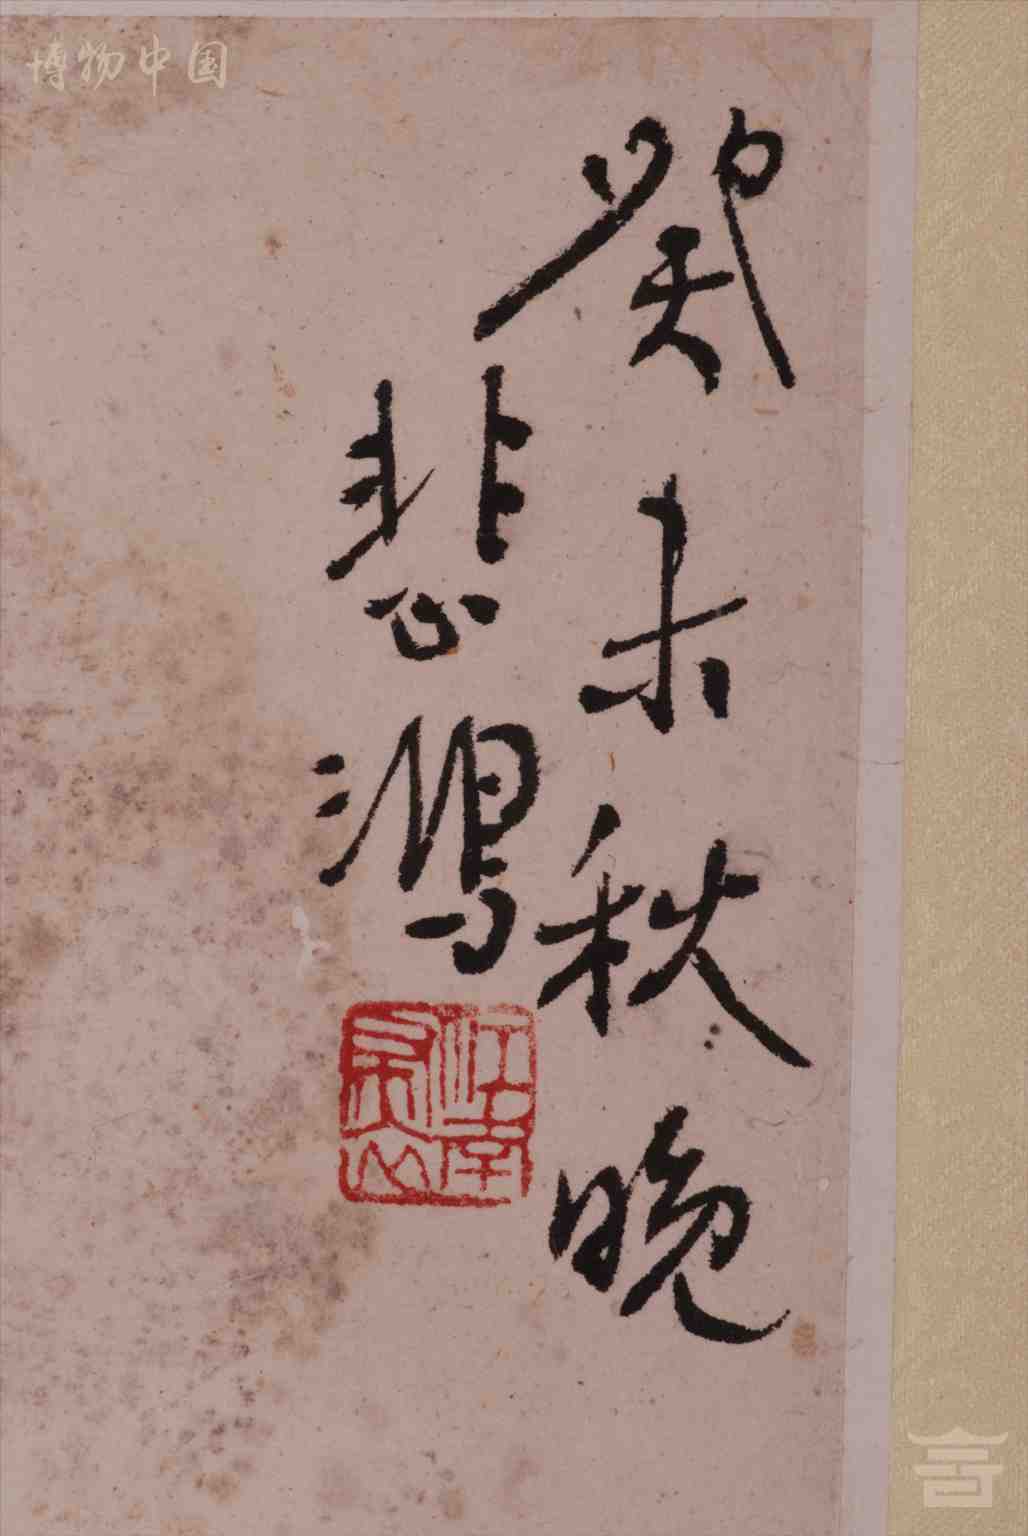 博物中国
癸未秋晚
悲鸿
江南布衣